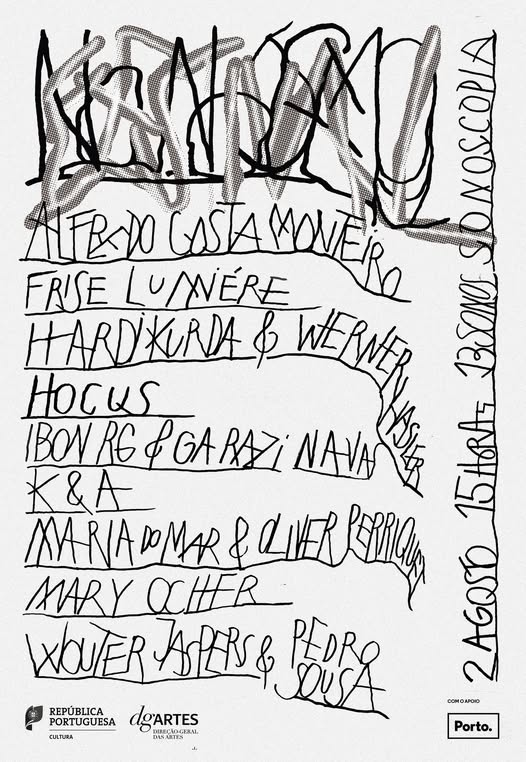 ALFREDO COSTA MONTEIRO
FRISE LUMIÉRE
HARDI KURDA & WERNER KASIER
HOCUS
IBON RG & GARAZI NAVAS
K & A
MARIA DO MAR & OLIVER PERRIQUM
MARY OCHER
WOUTER JASPERS & PEDRO SOUSA
2 AGOSTO 15 HORAS SONOSCOPIA
REPÚBLICA
PORTUGUESA
CULTURA
dgARTES
DIREÇÃO-GERAL
DAS ARTES
COM O APOIO
Porto.